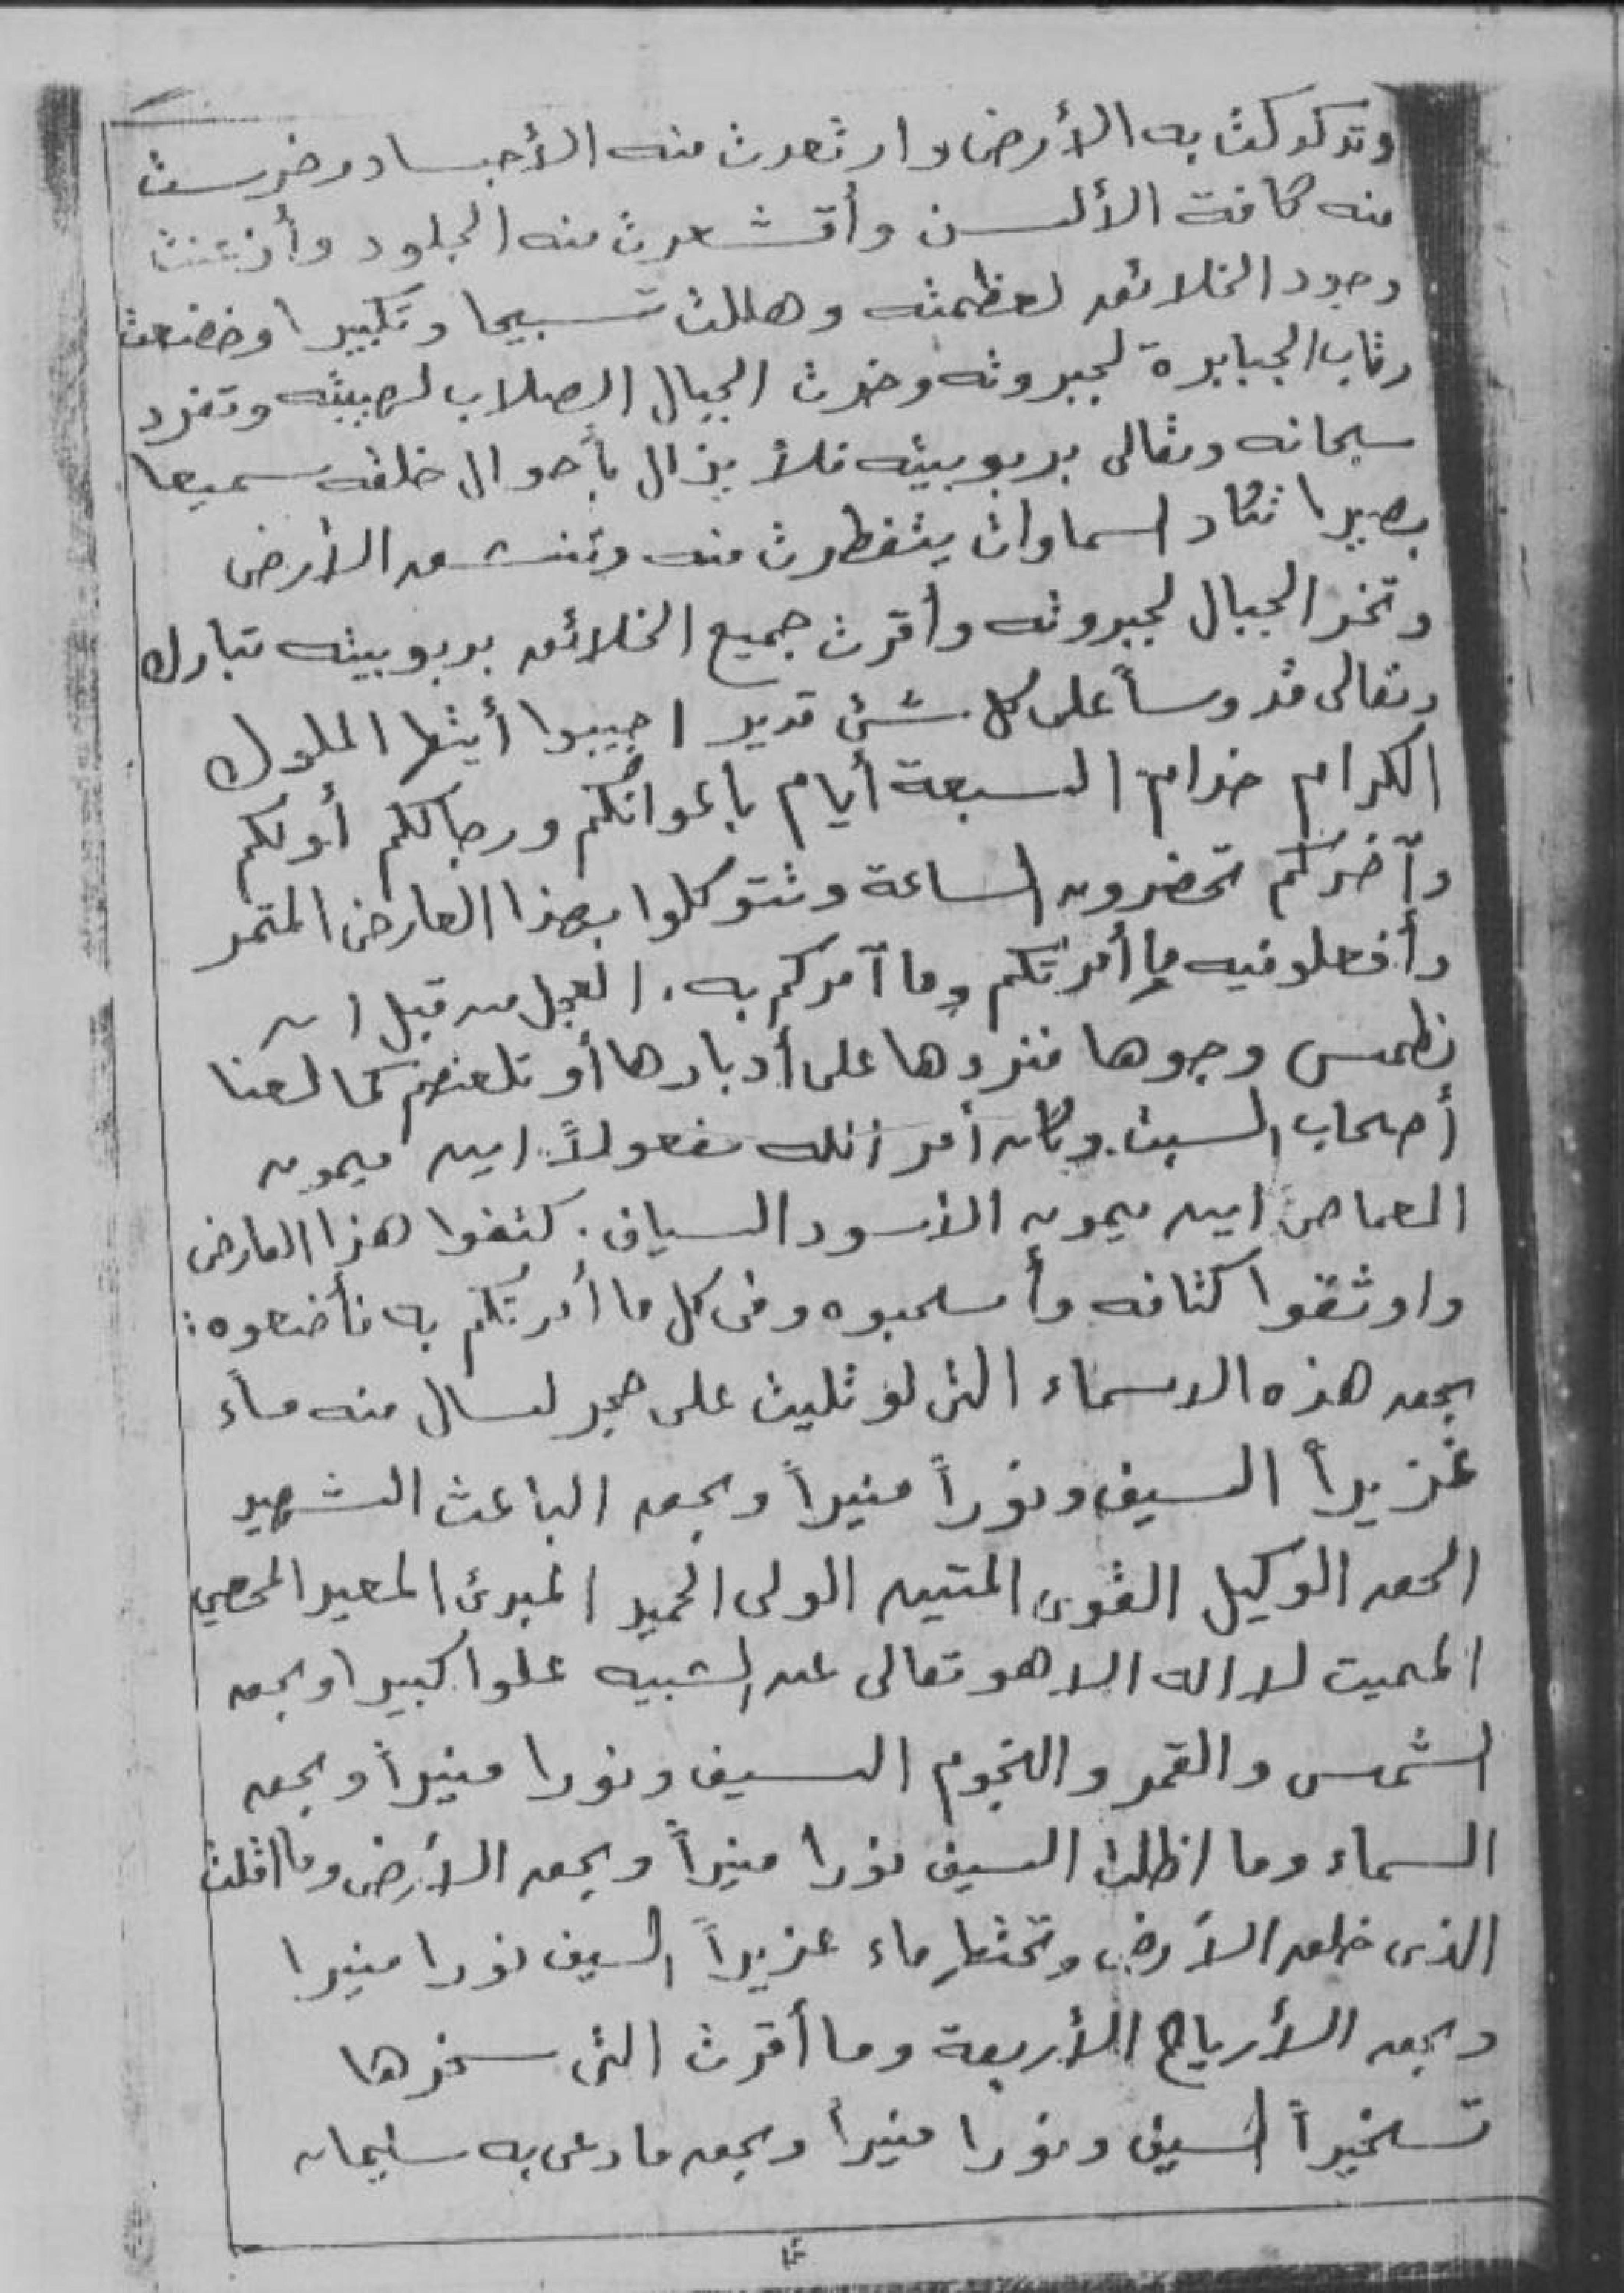 وتدكدكت به الأرض وارتعدت منه الأجساد وخرست
منه كافة الألسن وأقشعرت منه الجلود وأذعنت
وجود الخلائق لعظمته وهللت تسبيحا وتكبيرا وخضعت
رقاب الجبابرة لجبروته وخرت الجبال الصلاب لهيبته وتفرد
سبحانه وتعالى بربوبيته فلأ يزال بأحوال خلقه سميعا
بصيرا تكاد السماوات يتفطرت منه وتنشق الأرض
وتخر الجبال لجبروته وأقرت جميع الخلائق بربوبيته تبارك
وتعالى قدوساً على كل شئ قدير اجيبوا أيتها الملوك
الكرام خدام السبعة أيام بأعوانكم ورجالكم أولكم
وآخركم تحضرون الساعة وتتوكلوا بهذا العارض المتمر
وأفعلو فيه ما أمرتكم وما آمركم به. العجل من قبل ان
نطمس وجوها فنردها على أدبارها أو نلعنهم كما لعنا
أصحاب السبت وكان أمر الله مفعولاً. اين ميمون
الغماص اين ميمون الأسود السياف. كتفوا هذا العارض
واوثقوا كتافه وأسحبوه وفى كل ما أمرتكم به فأضعوه:
بحق هذه الاسماء التى لو تليت على حجر لسال منه ماء
غزيراً السيف ونوراً منيراً وبحق الباعث الشهيد
الحق الوكيل القوى المتين الولى الحميد المبدئ المعيد المحصي
المميت لا اله الا هو تعالى عن الشبيه علوا كبيرا وبحق
الشمس والقمر والنجوم السيف ونورا منيراً وبحق
السماء وما اظلت السيف نورا منيراً وبحق الأرض وما اقلت
الذى خلق الأرض وتحتها ماء غزيراً السيف نورا منيرا
وبحق الأرياح الأربعة وما أقرت التى سخرها
تسخيراً السيف ونورا منيراً وبحق ما دعى به سليمان